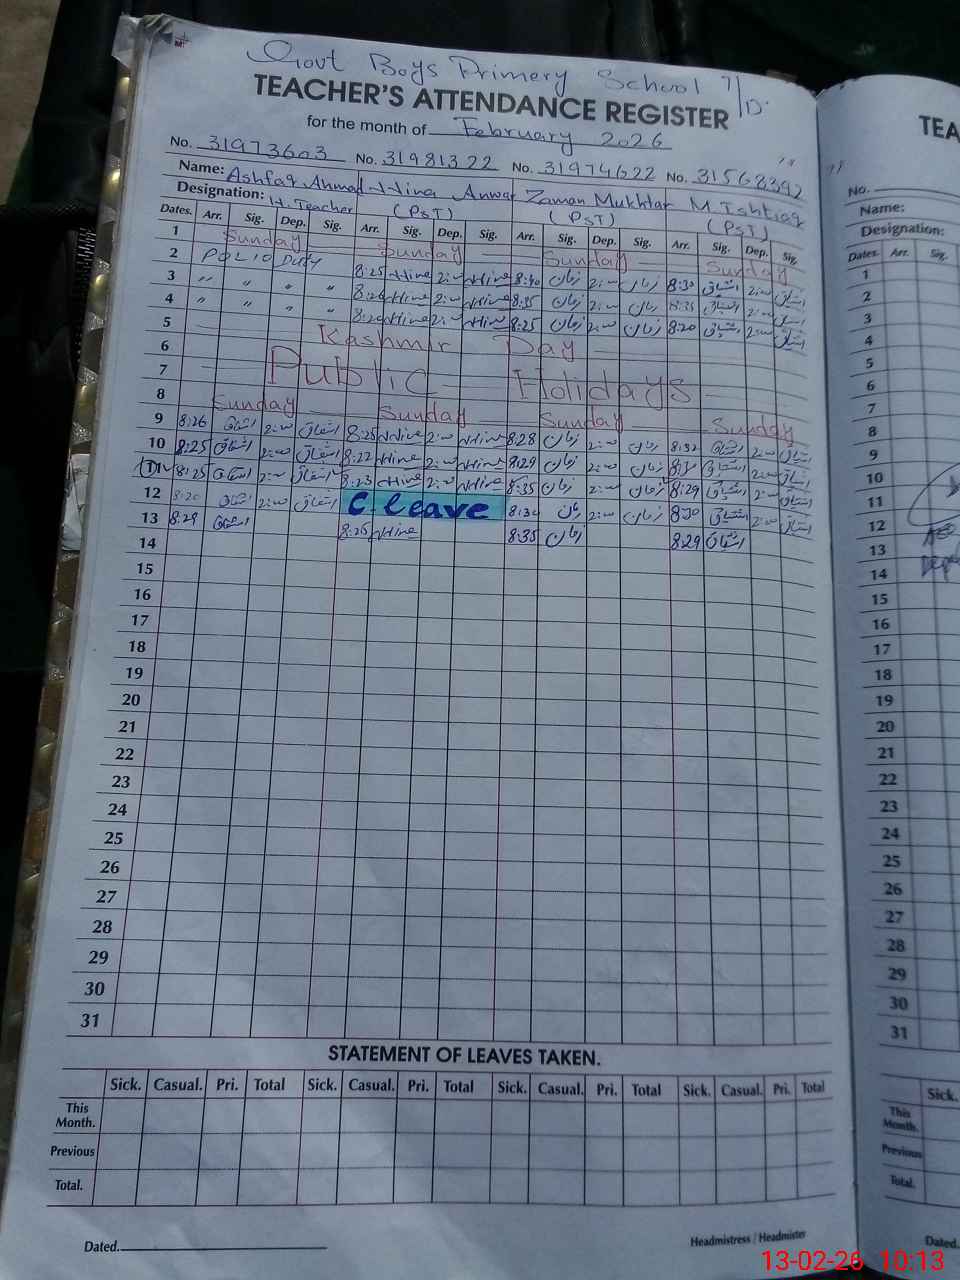 Govt Boys Primery School 7/D.
TEACHER'S ATTENDANCE REGISTER
for the month of February 2026
No. 31973603 No. 31981322 No. 31974622 No. 31568392
Name: Ashfaq Ahmad Hina Anwar Zaman Mukhtar M. Ishtiaq
Designation: H. Teacher (PST) (PST) (PST)
Dates. Arr. Sig. Dep. Sig. Arr. Sig. Dep. Sig. Arr. Sig. Dep. Sig. Arr. Sig. Dep. Sig.
1 Sunday Sunday Sunday Sunday
2 POLIO Duty 8:25 Hina Hina 8:30 زمان زمان 8:30 اشتیاق اشتیاق
3 " " " " 8:26 Hina Hina 8:35 زمان زمان 8:35 اشتیاق
4 " " " " 8:20 Hina Hina 8:25 زمان زمان 8:20 اشتیاق اشتیاق
5 Kashmir Day
6
7 Public Holidays
8 Sunday Sunday Sunday Sunday
9 8:26 اشفاق اشفاق 8:25 Hina Hina 8:28 زمان زمان 8:32 اشتیاق اشتیاق
10 8:25 اشفاق اشفاق 8:22 Hina Hina 8:29 زمان زمان اشتیاق اشتیاق
8:25 اشفاق اشفاق 8:23 Hina Hina 8:35 زمان زمان 8:29 اشتیاق اشتیاق
12 8:20 اشفاق اشفاق C leave 8:30 زمان زمان 8:30 اشتیاق اشتیاق
13 8:29 اشفاق 8:25 Hina 8:35 زمان 8:29 اشتیاق
14
15
16
17
18
19
20
21
22
23
24
25
26
27
28
29
30
31
STATEMENT OF LEAVES TAKEN.
Sick. Casual. Pri. Total Sick. Casual. Pri. Total Sick. Casual. Pri. Total Sick. Casual. Pri. Total
This Month.
Previous
Total.
Dated. Headmistress / Headmister
TEA
No.
Name:
Designation:
Dates. Arr. Sig.
1
2
3
4
5
6
7
8
9
10
11
12
13
14
15
16
17
18
19
20
21
22
23
24
25
26
27
28
29
30
31
Sick.
This Month.
Previous
Total.
Dated.
13-02-26 10:13